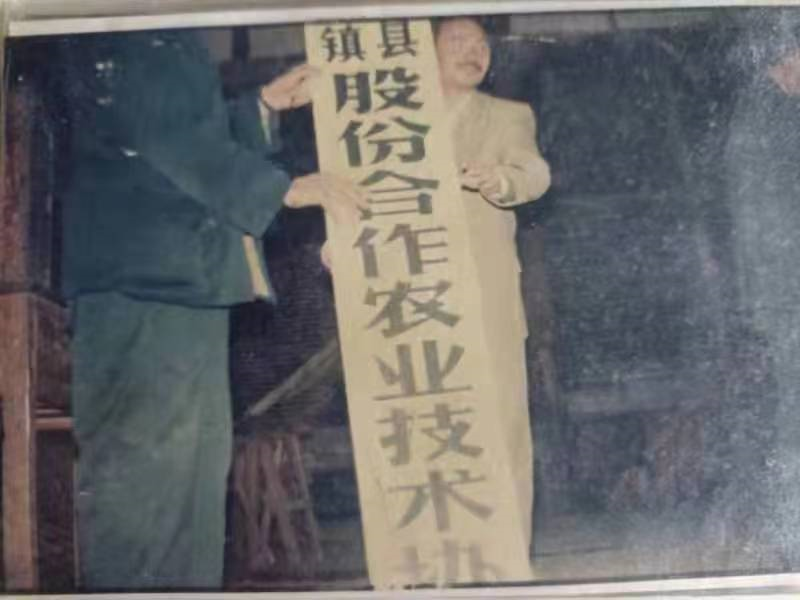 镇县
股份合作农业技术协